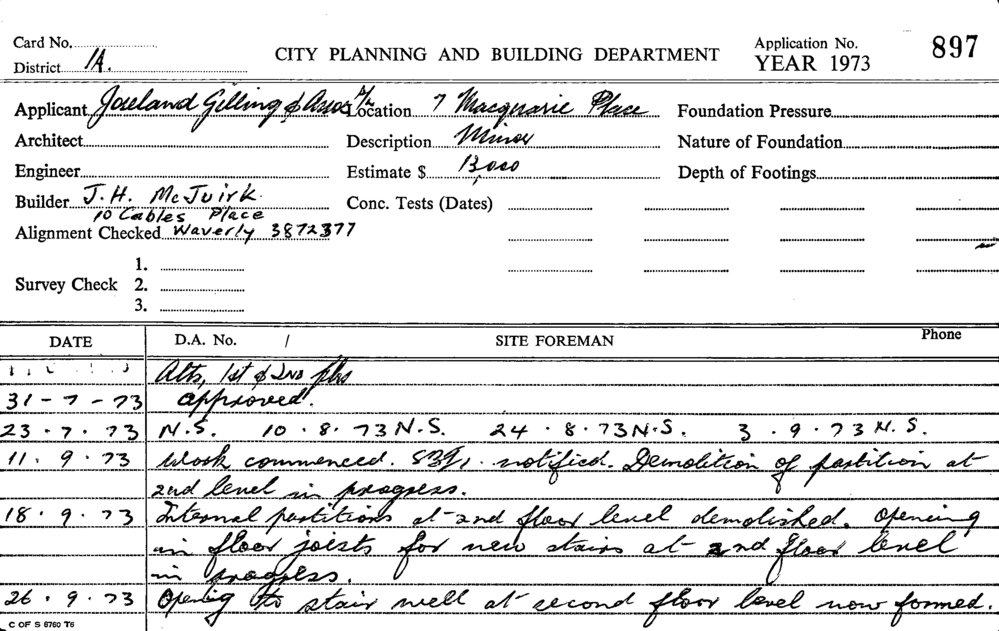 Card No.
District 1A.
CITY PLANNING AND BUILDING DEPARTMENT
Application No. 897
YEAR 1973
Applicant Joseland Gilling & Assoc P/L Location 7 Macquarie Place Foundation Pressure
Architect Description Minor Nature of Foundation
Engineer Estimate $ 13,000 Depth of Footings
Builder J.H. McJuirk. Conc. Tests (Dates)
10 Cables Place
Alignment Checked Waverly 3872377
1.
Survey Check 2.
3.
DATE D.A. No. / SITE FOREMAN Phone
Alts, 1st & 2nd flrs
31-7-73 approved.
23.7.73 N.S. 10.8.73 N.S. 24.8.73 N.S. 3.9.73 N.S.
11.9.73 Work commenced. notified. Demolition of partition at
2nd level in progress.
18.9.73 Internal partitions at 2nd floor level demolished. Opening
in floor joists for new stairs at 2nd floor level
in progress.
26.9.73 Opening to stair well at second floor level now formed.
C OF S 8760 T6